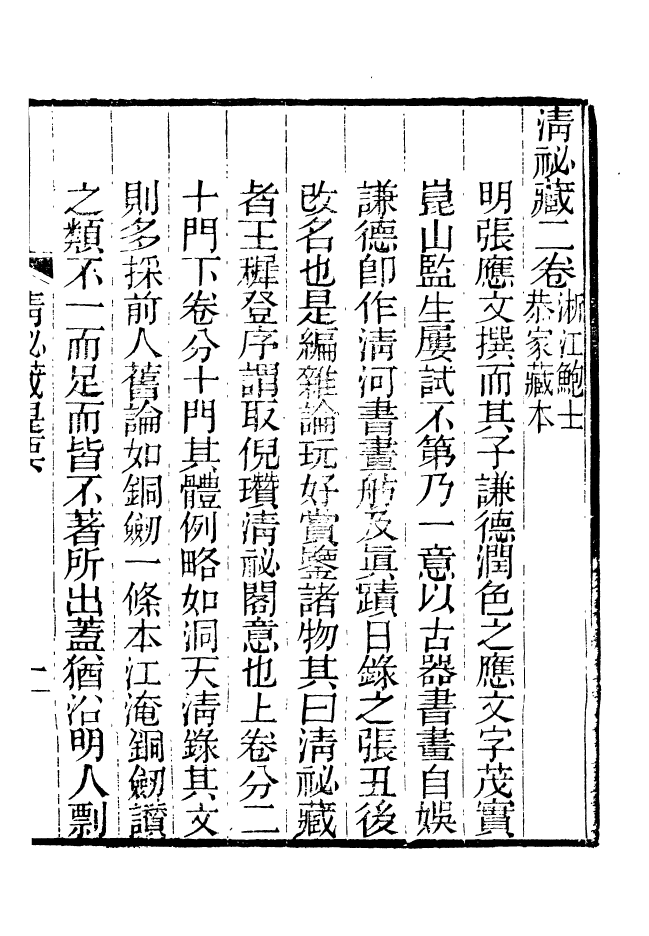 清祕藏二卷浙江鮑士恭家藏本
明張應文撰而其子謙德潤色之應文字茂實
崑山監生屢試不第乃一意以古器書畫自娛
謙德卽作淸河書畫舫及眞蹟日錄之張丑後
改名也是編雜論玩好賞鑒諸物其曰淸祕藏
者王穉登序謂取倪瓚淸祕閣意也上卷分二
十門下卷分十門其體例略如洞天淸錄其文
則多採前人舊論如銅劒一條本江淹銅劒讚
之類不一而足而皆不著所出蓋猶沿明人剽
淸祕藏提要
一